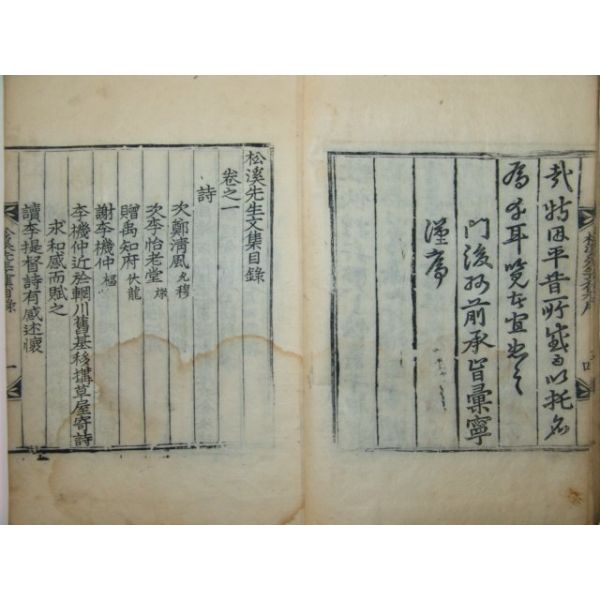 哉特因平昔所感而以托名
爲幸耳覽者宜恕之
門後孫前承旨彙寧
謹
松溪先生文集目錄
卷之一
詩
次鄭清風允穆
次李怡老堂燦
贈禹知府伏龍
謝李機仲榲
李機仲近於輞川舊基移搆草屋寄詩
求和感而賦之
讀李提督詩有感述懷
目錄 一